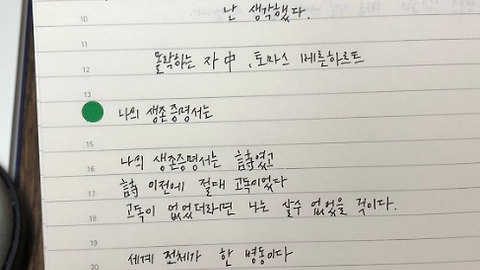 10 난 생각했다.
11
12 몰락하는 자 中, 토마스 베른하르트
13
나의 생존증명서는
15
16 나의 생존증명서는 詩였고
17 詩 이전에 절대 고독이었다
18 고독이 없었더라면 나는 살 수 없었을 것이다.
19
20 세계 전체가 한 병동이다